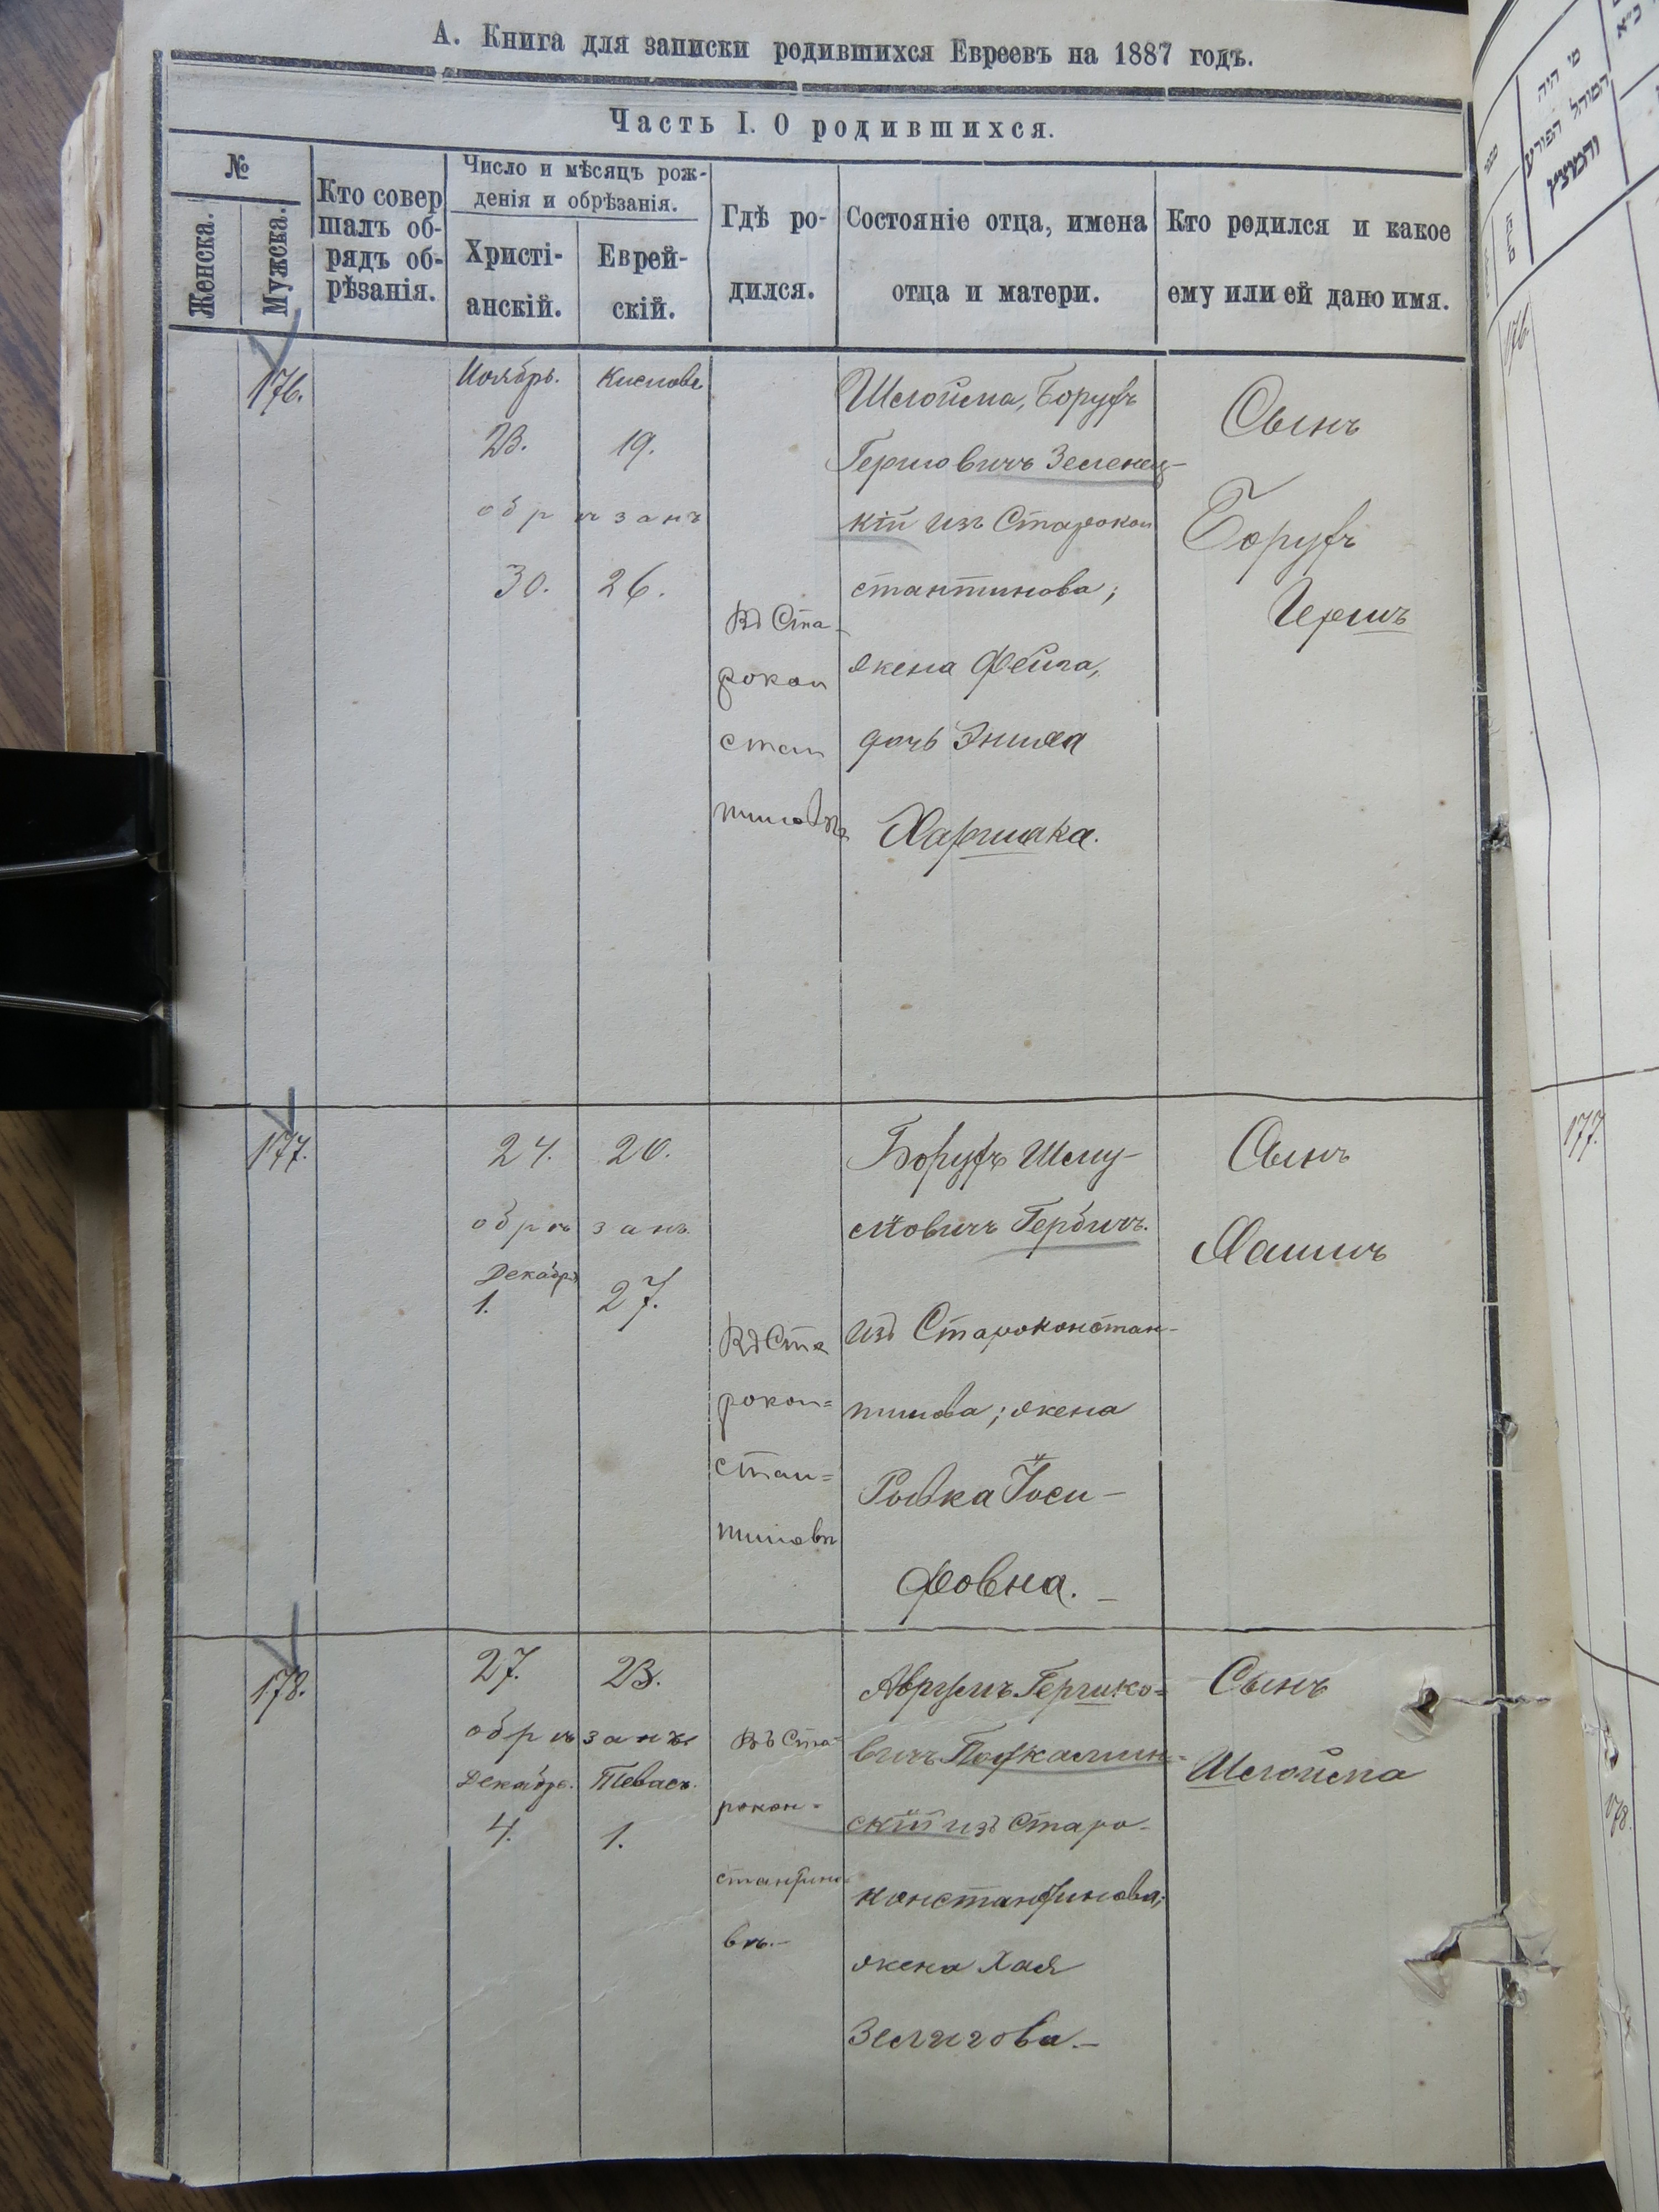 А. Книга для записки родившихся Евреевъ на 1887 годъ.
Часть I. О родившихся.
№
Женска.
Мужска.
Кто совер
шалъ об-
рядъ об-
рѣзанія.
Число и мѣсяцъ рож-
денія и обрѣзанія.
Христі-
анскій.
Еврей-
скій.
Гдѣ ро-
дился.
Состояніе отца, имена
отца и матери.
Кто родился и какое
ему или ей дано имя.
176.
Ноябрь.
23.
обрѣзанъ
30.
Кислова
19.
26.
Въ Ста-
рокон
стан
тиновѣ
Шлойма, Борухъ
Гершовичъ Зеленец-
кій изъ Старокон
стантинова;
жена Фейга,
дочь
Сынъ
Борухъ
Гершъ
177.
24.
обрѣзанъ
Декабрь
1.
20.
27.
Въ Ста
рокон=
стан=
тиновѣ
Борухъ Шму-
лiовичъ Гербичъ.
изъ Староконстан-
тинова; жена
Ривка Іоси-
фовна.-
Сынъ
178.
27.
обрѣзанъ
Декабрь.
4.
23.
Тевасъ.
1.
Въ Ста-
рокон-
стантино-
вѣ.-
Аврумъ Гершко=
вичъ
скій изъ Старо-
константинова;
жена Хая
Зелигова.-
Сынъ
Шлойма
מי היה
המוהל הפורע
והמוצץ
176
177.
178.